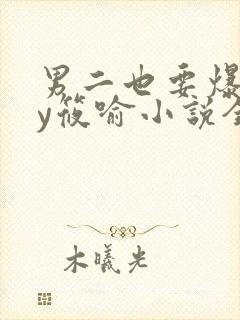 男二也要爆
y筱喻小说全
木曦光